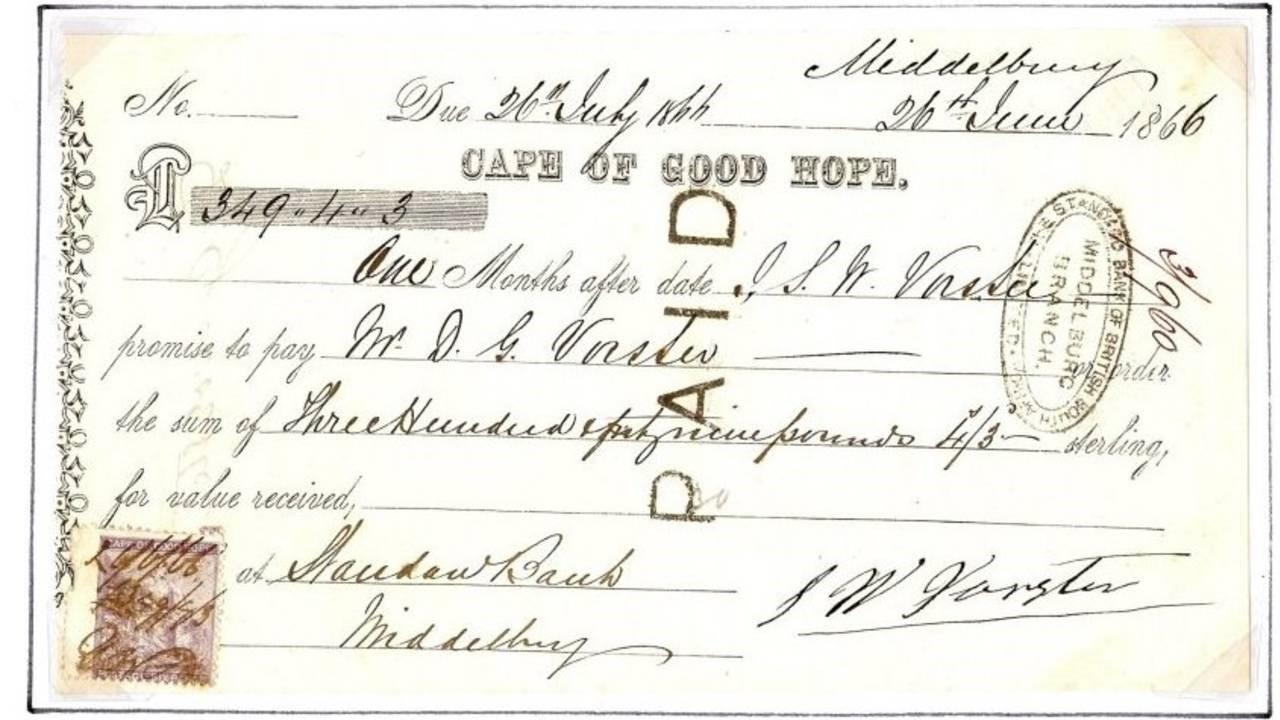 Middelburg
No. Due 26th July 1866 26th June 1866
CAPE OF GOOD HOPE.
£ 349 " 4 " 3
One Months after date I, S. W. Vorster
promise to pay Mr D. G. Vorster or order
the sum of Three Hundred & forty nine pounds 4/3 sterling,
for value received,
at Standard Bank
Middelburg
S W Vorster
PAID
THE STANDARD BANK OF BRITISH SOUTH AFRICA LIMITED.
MIDDELBURG
BRANCH.
3/960
CAPE OF GOOD HOPE